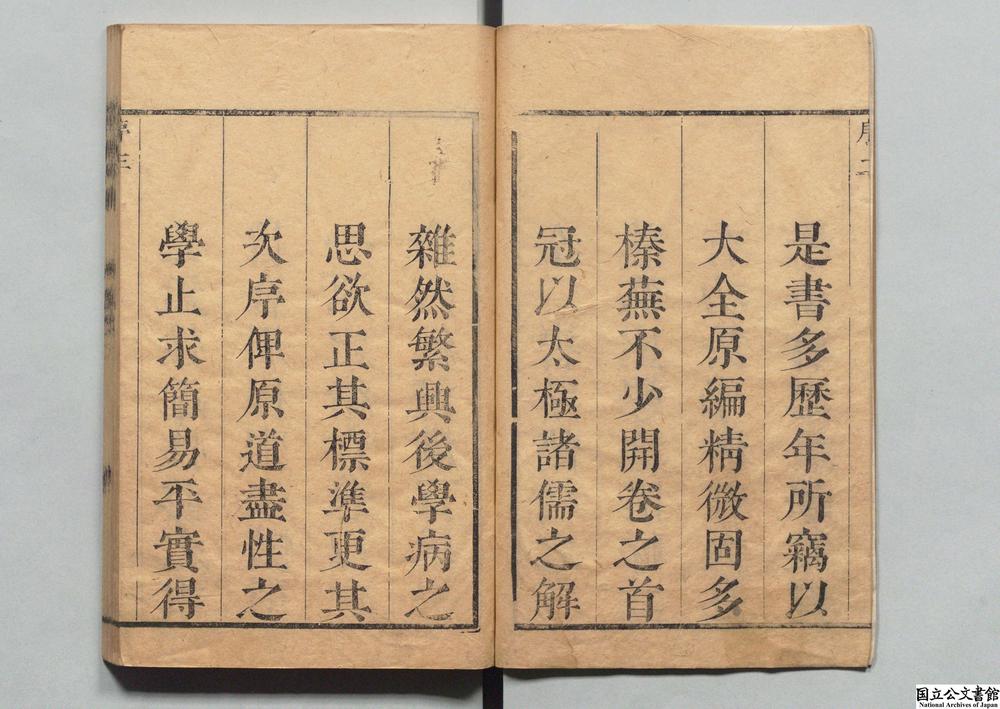 是書多歷年所竊以
大全原編精微固多
榛蕪不少開卷之首
冠以太極諸儒之解
雜然繁興後學病之
思欲正其標準更其
次序俾原道盡性之
學止求簡易平實得
国立公文書館
National Archives of Japan